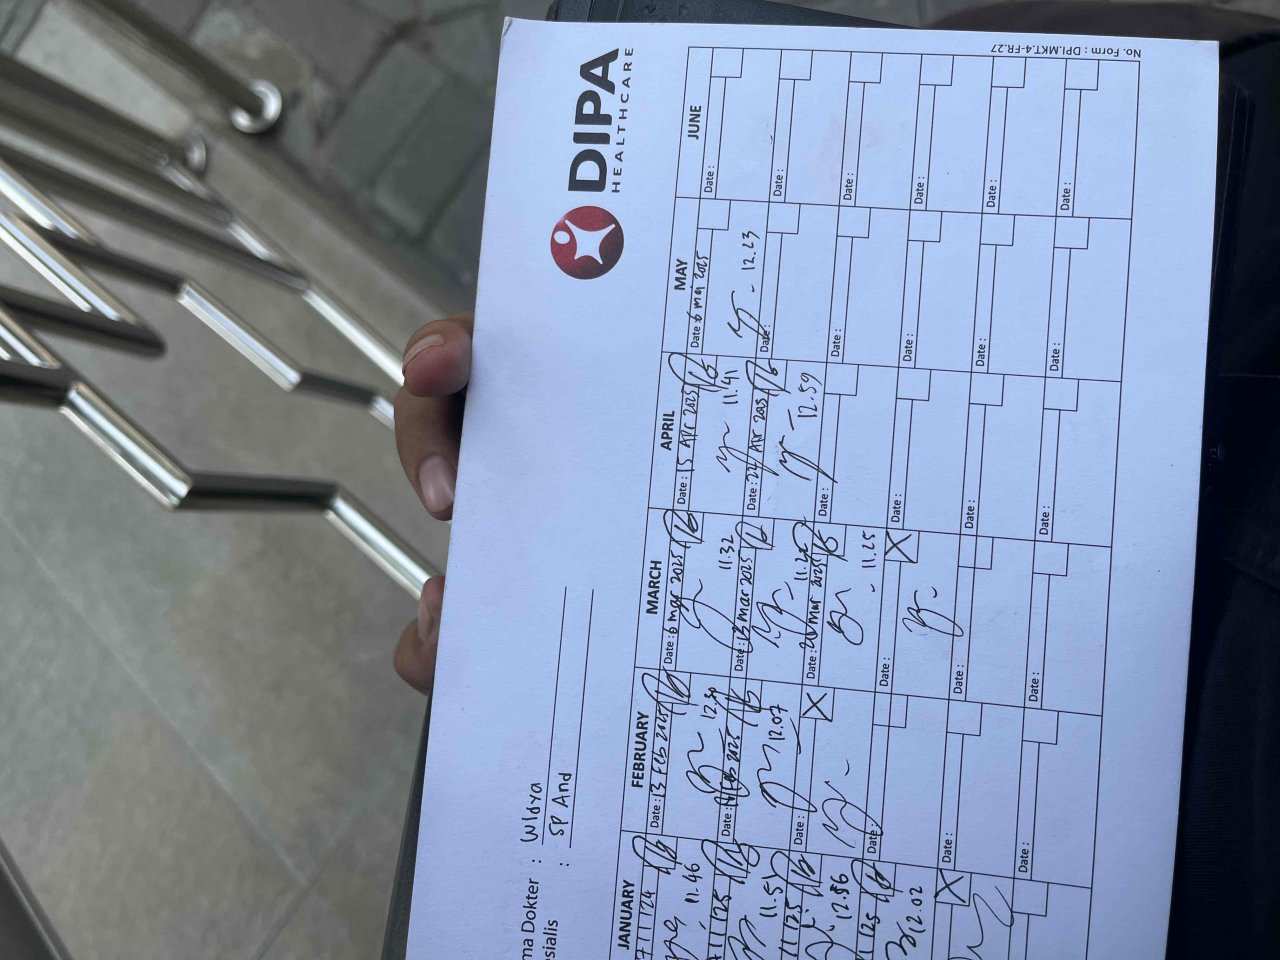 DIPA
HEALTHCARE
ma Dokter : Widya
esialis : SP And
JANUARY FEBRUARY MARCH APRIL MAY JUNE
Date : 13 Feb 2025 Date : 6 mar 2025 Date : 15 Apr 2025 Date 6 mei 2025 Date :
11.46 11.32 11.41 12.23
Date : Feb 2025 Date : 13 mar 2025 Date : 22 Apr 2025 Date: Date :
11.51 12.07 12.59
Date : Date : mar 2025 Date : Date : Date :
12.56 11.25
Date: Date : Date : Date : Date :
12.02
Date : Date : Date : Date : Date :
Date : Date : Date : Date : Date :
No. Form : DPI.MKT.4-FR.27